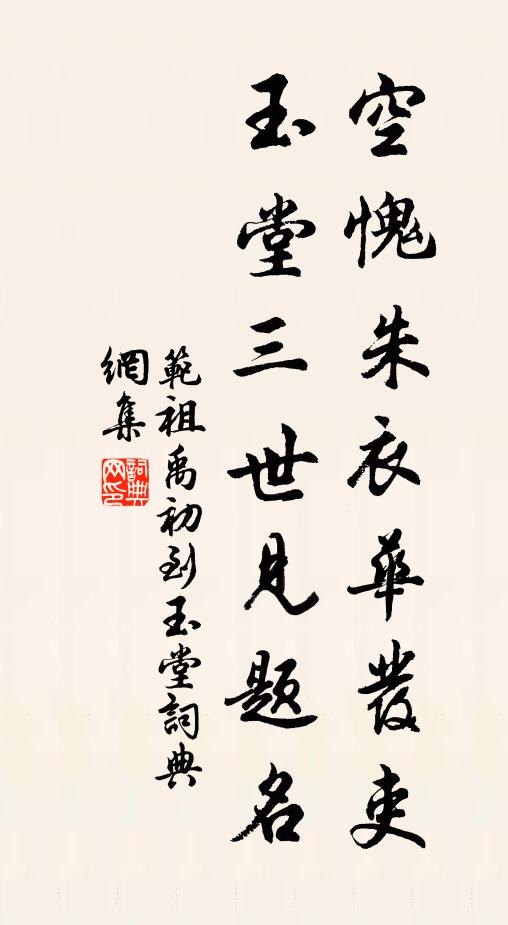 空愧朱衣華發吏
玉堂三世見題名
範祖禹初到玉堂詞典
網集
詞典
网印